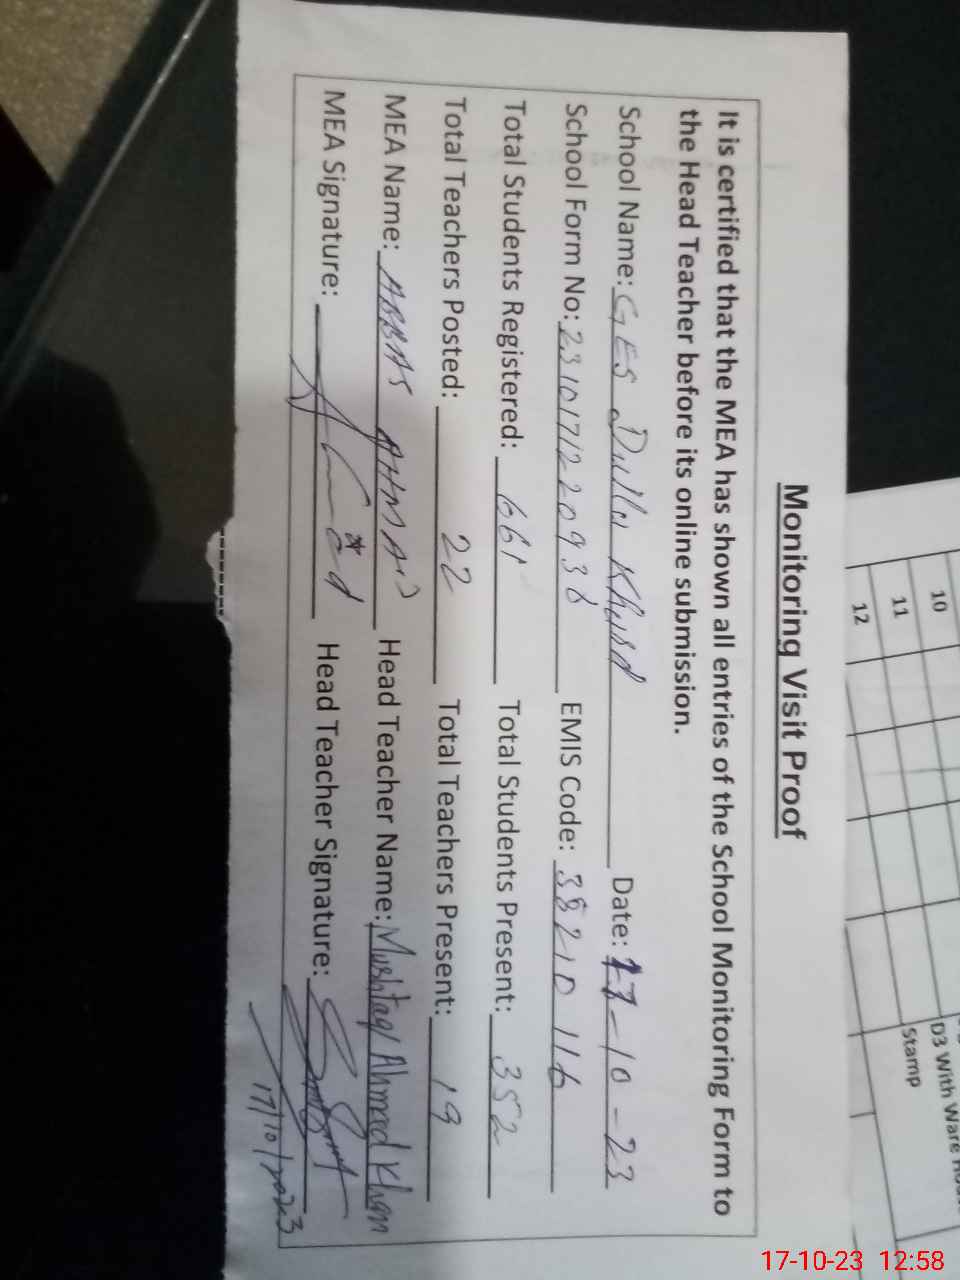 Monitoring Visit Proof
It is certified that the MEA has shown all entries of the School Monitoring Form to
the Head Teacher before its online submission.
School Name: GES Dulla Khurd Date: 17-10-23
School Form No: 231017122093 EMIS Code: 38210116
Total Students Registered: 661 Total Students Present: 352
Total Teachers Posted: 22 Total Teachers Present: 19
MEA Name: ABBAS AHMAD Head Teacher Name: Mushtaq Ahmad Khan
MEA Signature: Head Teacher Signature:
17/10/2023
10
11
12
D3 With Ware
Stamp
17-10-23 12:58